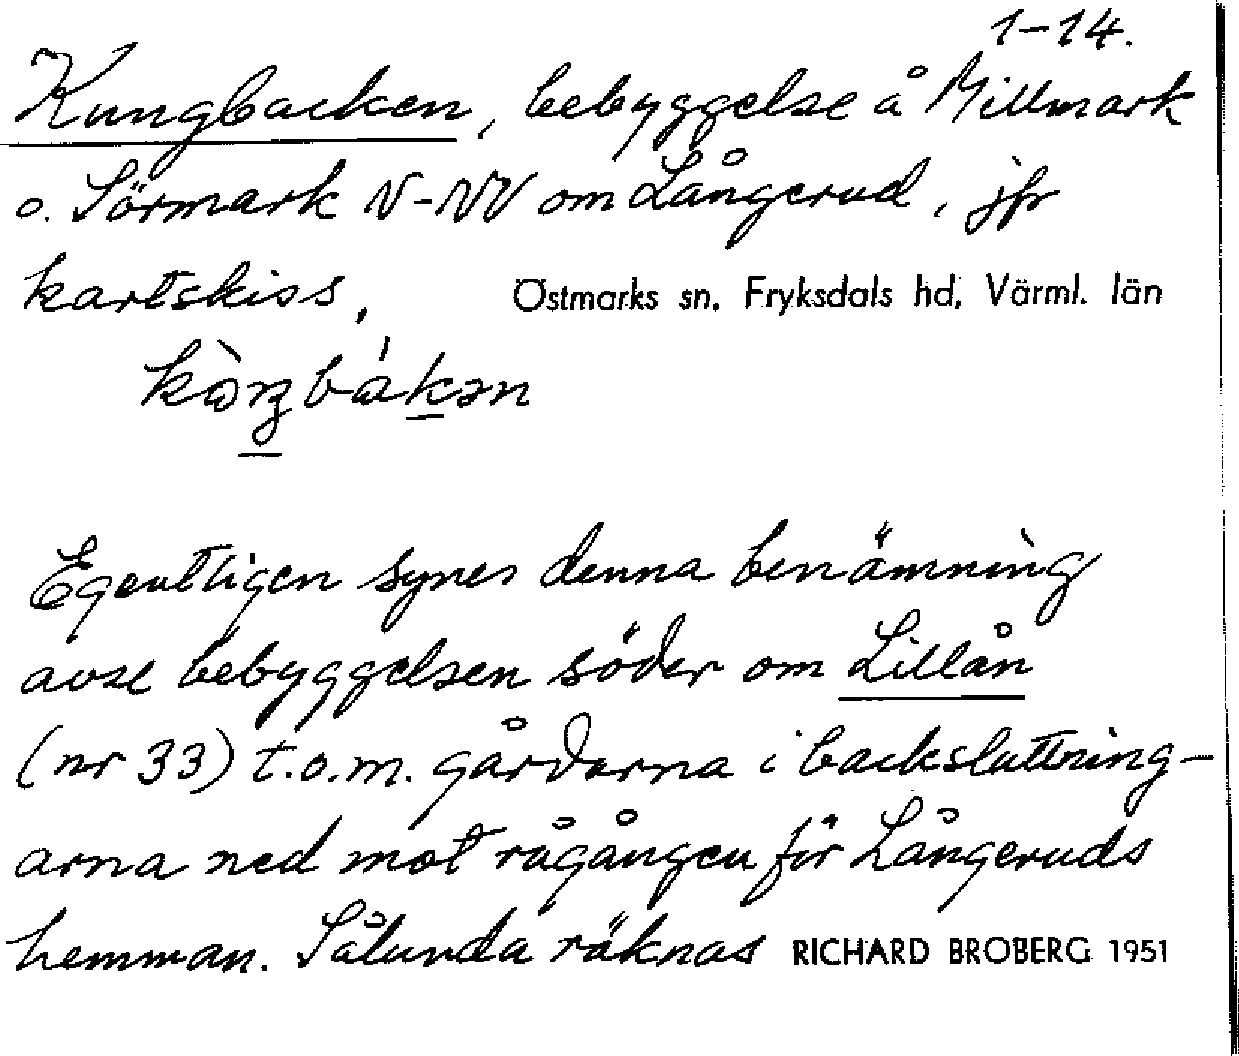 1-14.
Kungbacken, bebyggelse å Millmark
o. Sörmark N-NV om Långerud, jfr
kartskiss, Östmarks sn, Fryksdals hd, Värml. län
Egentligen synes denna benämning
avse bebyggelsen söder om Lillån
(nr 33) t.o.m. gårdarna i backslattring-
arna ned mot rågången för Långeruds
hemman. Sålunda räknas RICHARD BROBERG 1951